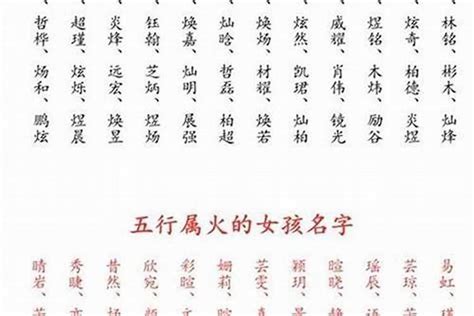 、林铭、彬木、灿烽
、炫奇、柏德、炎煜
、煜铭、木炜、励谷
、威耀、肖伟、镜光
、炫然、凯珺、灿炀
、焕炀、材耀、焕若
、灿晗、哲磊、柏超
、焕嘉、灿明、展强
、钰翰、芝炳、煜炀
、炎烽、远宏、焕昱
、超瑾、炫烁、煜晨
、哲桦、炀和、鹏炫
五行属火的女孩名字
易虹、
芸琼、
瑶辰、
暄晓、
颖玥、
芸雯、
姗莉、
彩暄、
欣宛、
昔然、
秀睫、
晴岩、